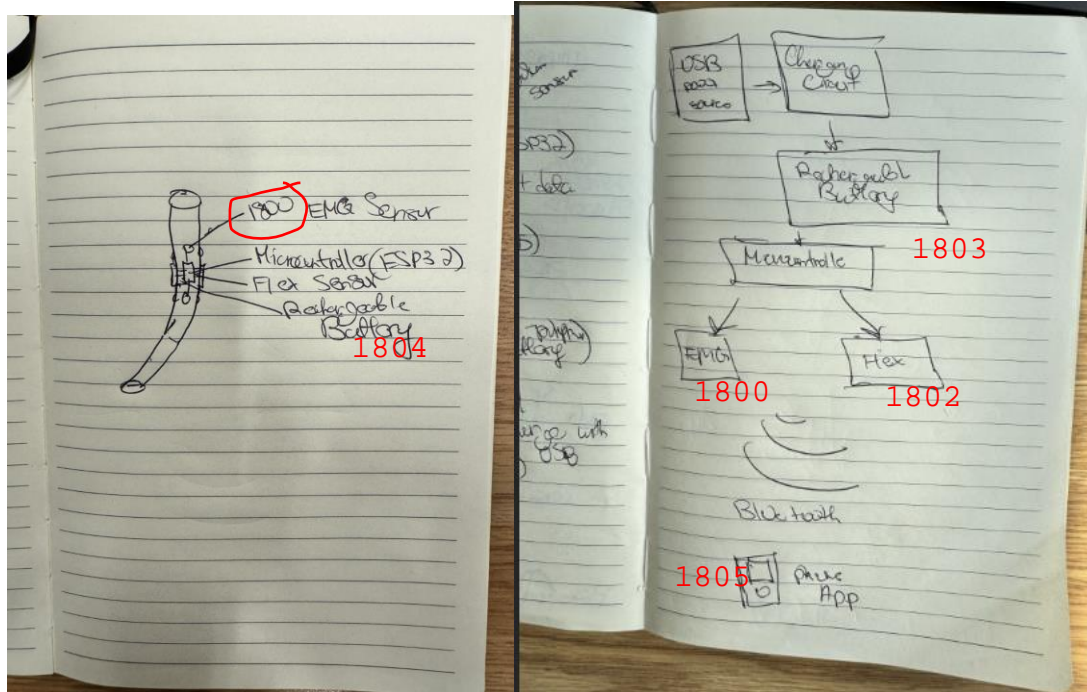 1800 EMG Sensor
Microcontroller (ESP32)
Flex Sensor
Rechargeable
Battery
1804
sensor
SP32)
t data
5)
ttery
urge with
USB
USB
source
Charging
Circuit
Rechargeabl
Battery
1803
Microcontrolle
EMG
1800
Flex
1802
Bluetooth
1805
phone
App